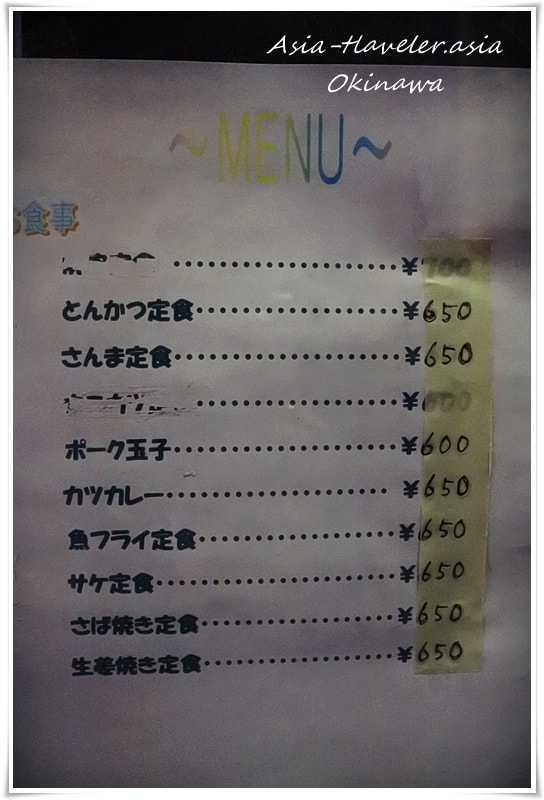 Asia-Traveler.asia
Okinawa
~MENU~
食事
¥700
とんかつ定食 ¥650
さんま定食 ¥650
¥600
ポーク玉子 ¥600
カツカレー ¥650
魚フライ定食 ¥650
サケ定食 ¥650
さば焼き定食 ¥650
生姜焼き定食 ¥650